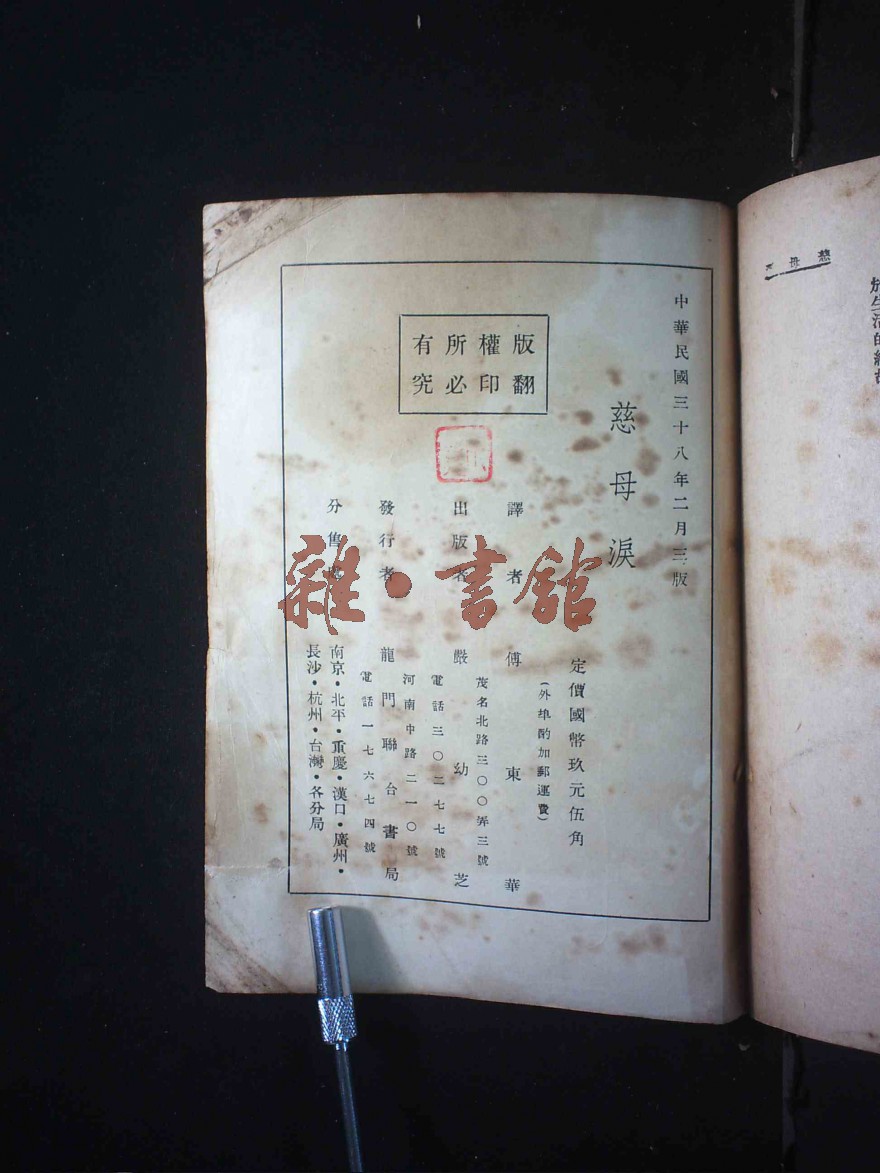 中華民國三十八年二月三版
慈母淚
定價國幣玖元伍角
(外埠酌加郵運費)
譯者 傅東華
出版者 嚴幼芝
茂名北路三〇〇弄三號
電話三〇二七七號
發行者 龍門聯合書局
河南中路二一〇號
電話一七六七四號
分售處
南京·北平·重慶·漢口·廣州·
長沙·杭州·台灣·各分局
版權所有
翻印必究
雜·書館
慈母